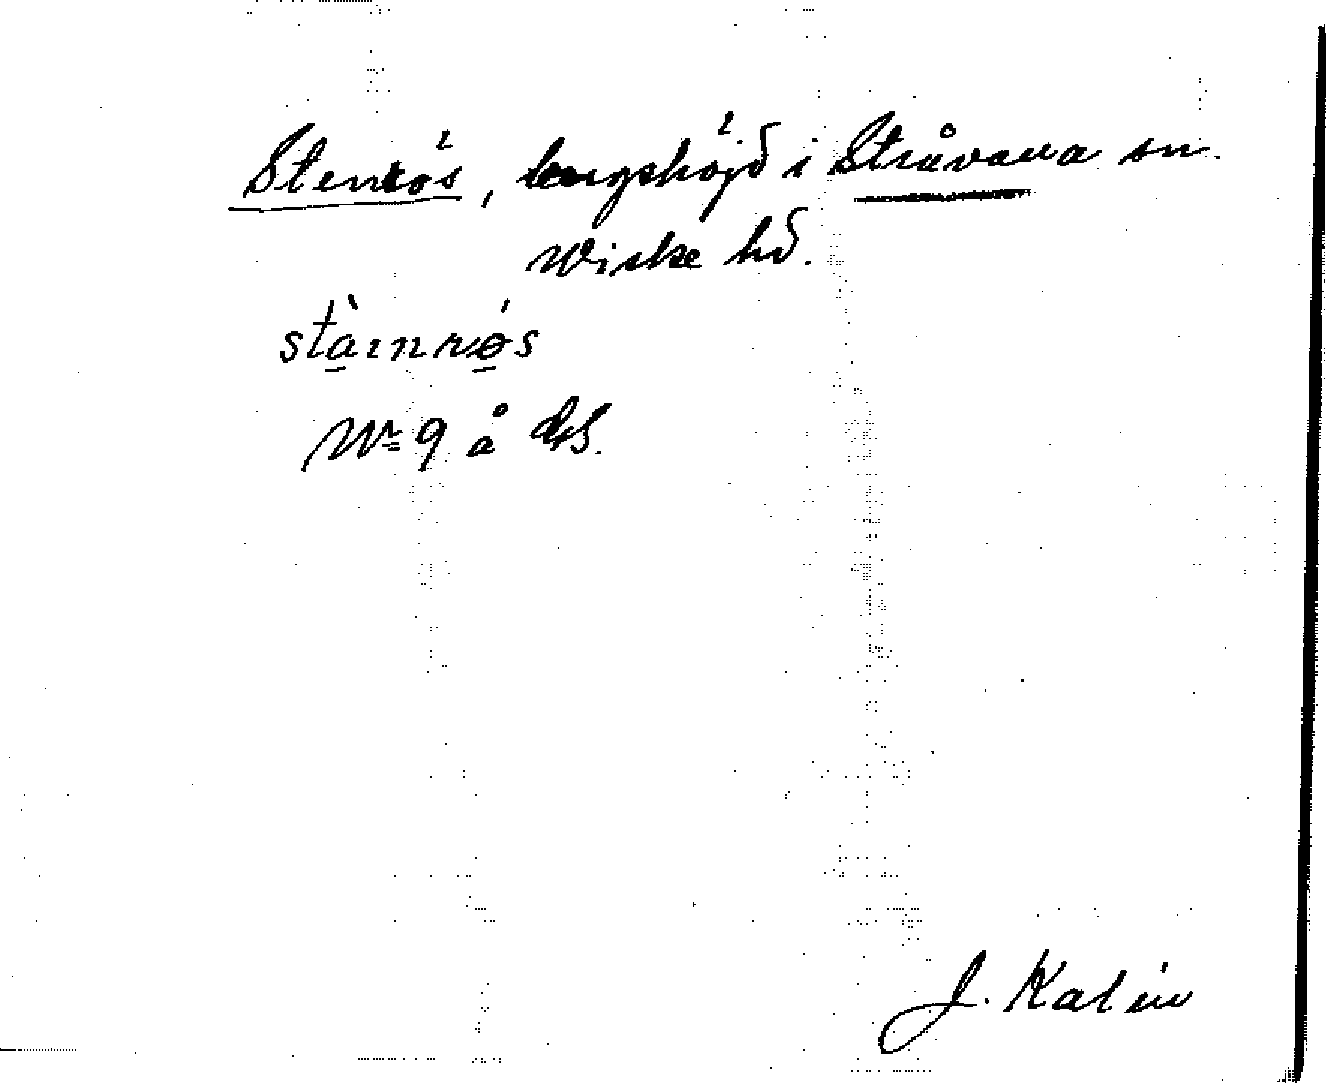 Stenrös, bergshöjd i Stråvana sn.
Wiske hd.
stàinrǿs
No 9 å GS.
J. Kalén